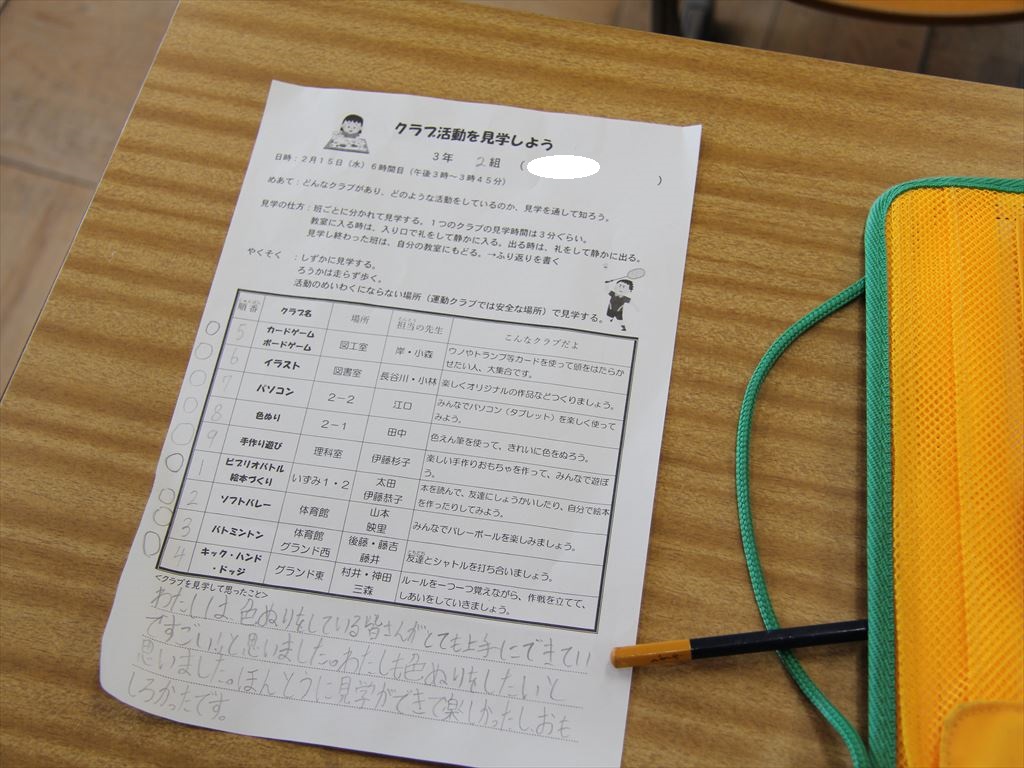 クラブ活動を見学しよう
3年 2組 (    )
日時：2月15日（水）6時間目（午後3時～3時45分）
めあて：どんなクラブがあり、どのような活動をしているのか、見学を通して知ろう。
見学の仕方：班ごとに分かれて見学する。1つのクラブの見学時間は3分ぐらい。
教室に入る時は、入り口で礼をして静かに入る。出る時は、礼をして静かに出る。
見学し終わった班は、自分の教室にもどる。→ふり返りを書く
やくそく ：しずかに見学する。
ろうかは走らず歩く。
活動のめいわくにならない場所（運動クラブでは安全な場所）で見学する。
順番 クラブ名 場所 担当の先生 こんなクラブだよ
5 カードゲーム ボードゲーム 図工室 岸・小森 ウノやトランプ等カードを使って頭をはたらかせたい人、大集合です。
6 イラスト 図書室 長谷川・小林 楽しくオリジナルの作品などつくりましょう。
7 パソコン 2－2 江口 みんなでパソコン（タブレット）を楽しく使ってみよう。
8 色ぬり 2－1 田中 色えん筆を使って、きれいに色をぬろう。
9 手作り遊び 理科室 伊藤杉子 楽しい手作りおもちゃを作って、みんなで遊ぼう。
1 ビブリオバトル 絵本づくり いずみ1・2 太田 伊藤恭子 本を読んで、友達にしょうかいしたり、自分で絵本を作ったりしてみよう。
2 ソフトバレー 体育館 山本 映里 みんなでバレーボールを楽しみましょう。
3 バトミントン 体育館 グランド西 後藤・藤吉 藤井 友達とシャトルを打ち合いましょう。
4 キック・ハンド・ドッジ グランド東 村井・神田 三森 ルールを一つ一つ覚えながら、作戦を立てて、しあいをしていきましょう。
＜クラブを見学して思ったこと＞
わたしは、色ぬりをしている皆さんがとても上手にできてい
てすごい！と思いました。わたしも色ぬりをしたいと
思いました。ほんとうに見学ができて楽しかったし、おも
しろかったです。